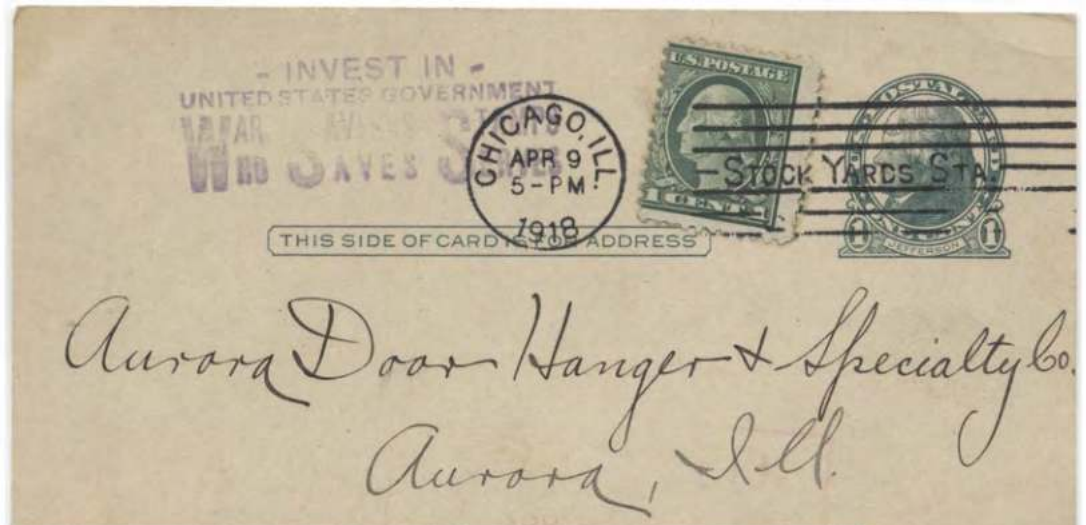 - INVEST IN -
UNITED STATES GOVERNMENT
WAR SAVINGS STAMPS
WHO SAVES SERVES
CHICAGO, ILL.
APR 9
5-PM
1918
U.S. POSTAGE
1 CENT 1
STOCK YARDS STA.
1 JEFFERSON 1
THIS SIDE OF CARD IS FOR ADDRESS
Aurora Door Hanger & Specialty Co.
Aurora, Ill.